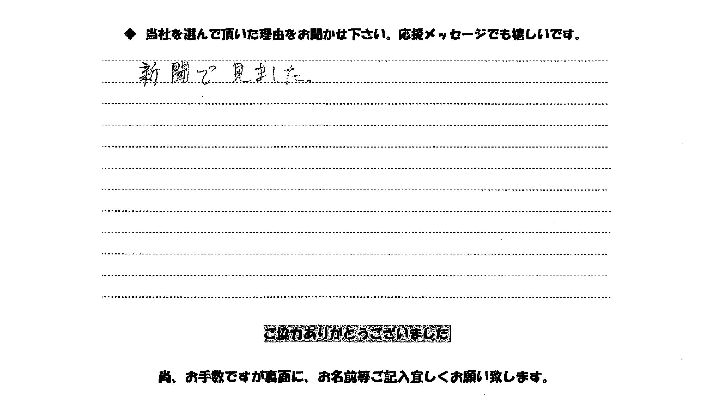 ◆ 当社を選んで頂いた理由をお聞かせ下さい。応援メッセージでも嬉しいです。
新聞で見ました。
ご協力ありがとうございました
尚、お手数ですが裏面に、お名前等ご記入宜しくお願い致します。